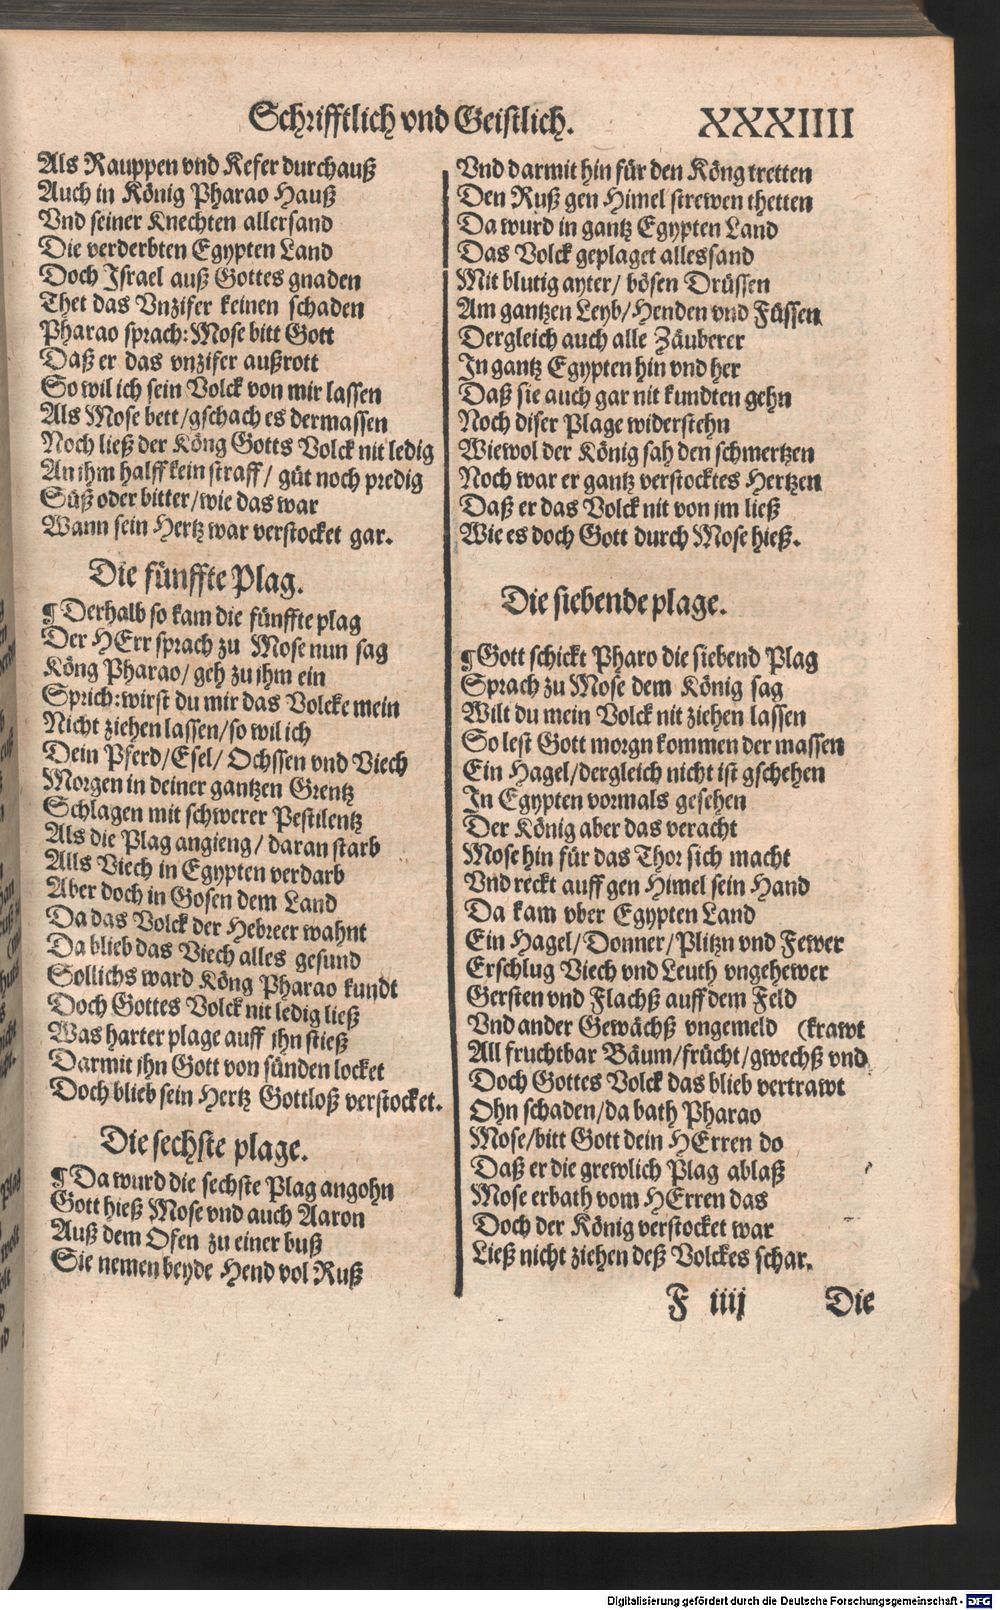 Schrifftlich vnd Geistlich. XXXIIII
Als Rauppen vnd Kefer durchauß
Auch in König Pharao Hauß
Vnd seiner Knechten allersand
Die verderbten Egypten Land
Doch Israel auß Gottes gnaden
Thet das Vnzifer keinen schaden
Pharao sprach: Mose bitt Gott
Daß er das vnzifer außrott
So wil ich sein Volck von mir lassen
Als Mose bett/gschach es dermassen
Noch ließ der Köng Gotts Volck nit ledig
An ihm halff kein straff/ güt noch predig
Süß oder bitter/wie das war
Wann sein Hertz war verstocket gar.
Die fünffte Plag.
¶ Derhalb so kam die fünffte plag
Der HErr sprach zu Mose nun sag
Köng Pharao/ geh zu ihm ein
Sprich: wirst du mir das Volcke mein
Nicht ziehen lassen/so wil ich
Dein Pferd/Esel/ Ochssen vnd Viech
Morgen in deiner gantzen Grentz
Schlagen mit schwerer Pestilentz
Als die Plag angieng/ daran starb
Alls Viech in Egypten verdarb
Aber doch in Gosen dem Land
Da das Volck der Hebreer wahnt
Da blieb das Viech alles gesund
Sollichs ward Köng Pharao kundt
Doch Gottes Volck nit ledig ließ
Was harter plage auff ihn stieß
Darmit ihn Gott von sünden locket
Doch blieb sein Hertz Gottloß verstocket.
Die sechste plage.
¶ Da wurd die sechste Plag angohn
Gott hieß Mose vnd auch Aaron
Auß dem Ofen zu einer buß
Sie nemen beyde Hend vol Ruß
Vnd darmit hin für den Köng tretten
Den Ruß gen Himel strewen thetten
Da wurd in gantz Egypten Land
Das Volck geplaget allessand
Mit blutig ayter/ bösen Drüssen
Am gantzen Leyb/Henden vnd Füssen
Dergleich auch alle Zäuberer
In gantz Egypten hin vnd her
Daß sie auch gar nit kundten gehn
Noch diser Plage widerstehn
Wiewol der König sah den schmertzen
Noch war er gantz verstocktes Hertzen
Daß er das Volck nit von jm ließ
Wie es doch Gott durch Mose hieß.
Die siebende plage.
¶ Gott schickt Pharo die siebend Plag
Sprach zu Mose dem König sag
Wilt du mein Volck nit ziehen lassen
So lest Gott morgn kommen der massen
Ein Hagel/dergleich nicht ist gschehen
In Egypten vormals gesehen
Der König aber das veracht
Mose hin für das Thor sich macht
Vnd reckt auff gen Himel sein Hand
Da kam vber Egypten Land
Ein Hagel/Donner/Plitzn vnd Fewer
Erschlug Viech vnd Leuth vngehewer
Gersten vnd Flachß auff dem Feld
Vnd ander Gewächß vngemeld (krawt
All fruchtbar Bäum/frücht/gwechß vnd
Doch Gottes Volck das blieb vertrawt
Ohn schaden/da bath Pharao
Mose/bitt Gott dein HErren do
Daß er die grewlich Plag ablaß
Mose erbath vom HErren das
Doch der König verstocket war
Ließ nicht ziehen deß Volckes schar.
F iiij Die
Digitalisierung gefördert durch die Deutsche Forschungsgemeinschaft - DFG